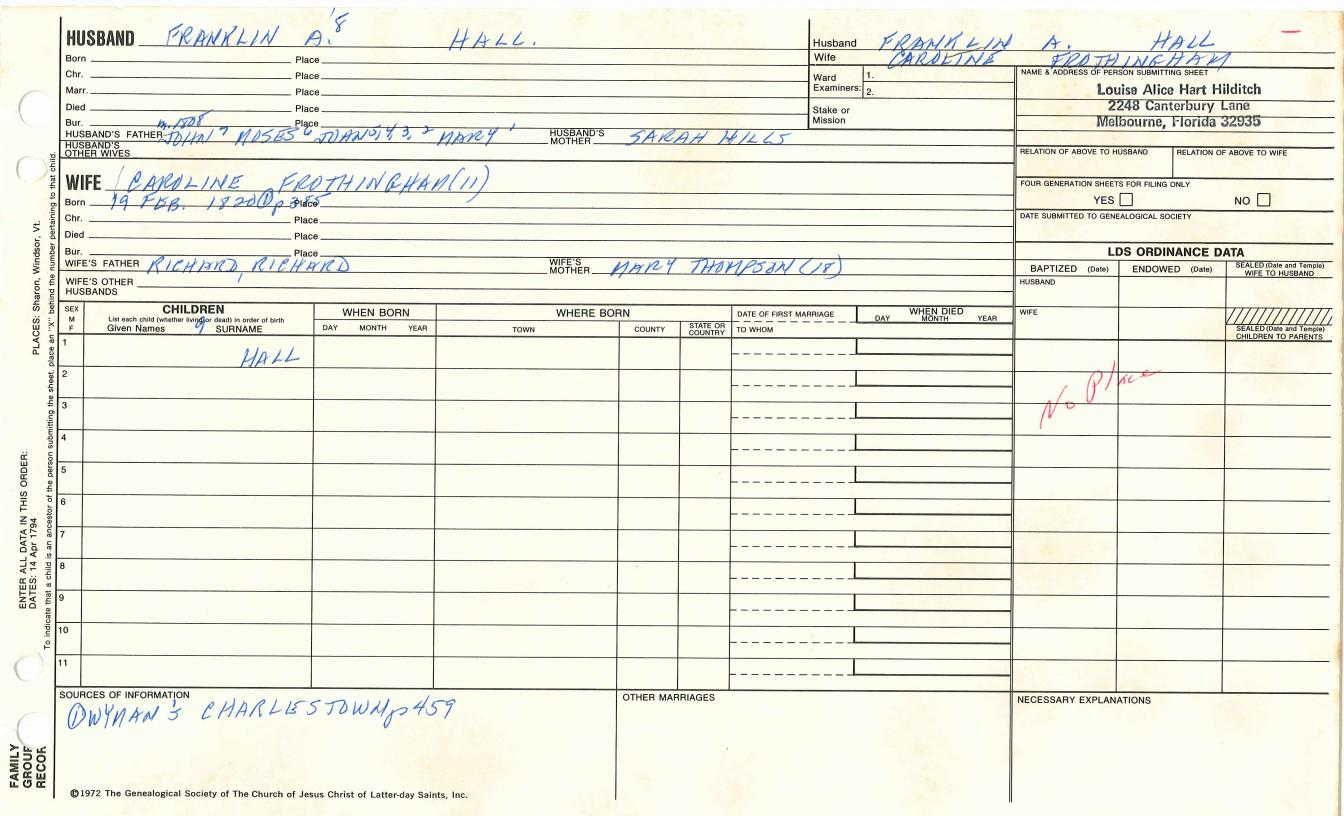 HUSBAND FRANKLIN A.8 HALL.
Born Place
Chr. Place
Marr. Place
Died Place
Bur. Place
m. 1808
HUSBAND'S FATHER JOHN7 MOSES6 JOHN5,4,3,2 MARY1 HUSBAND'S MOTHER SARAH HILLS
HUSBAND'S OTHER WIVES
WIFE CAROLINE FROTHINGHAM (11)
Born 19 FEB. 1820 ① p 385 Place
Chr. Place
Died Place
Bur. Place
WIFE'S FATHER RICHARD, RICHARD WIFE'S MOTHER MARY THOMPSON (18)
WIFE'S OTHER HUSBANDS
Husband FRANKLIN A. HALL
Wife CAROLINE FROTHINGHAM
Ward Examiners: 1.
2.
Stake or Mission
NAME & ADDRESS OF PERSON SUBMITTING SHEET
Louise Alice Hart Hilditch
2248 Canterbury Lane
Melbourne, Florida 32935
RELATION OF ABOVE TO HUSBAND RELATION OF ABOVE TO WIFE
FOUR GENERATION SHEETS FOR FILING ONLY
YES NO
DATE SUBMITTED TO GENEALOGICAL SOCIETY
LDS ORDINANCE DATA
BAPTIZED (Date) ENDOWED (Date) SEALED (Date and Temple) WIFE TO HUSBAND
HUSBAND
WIFE
SEALED (Date and Temple) CHILDREN TO PARENTS
SEX M F
CHILDREN
List each child (whether living or dead) in order of birth
Given Names 9 SURNAME
WHEN BORN
DAY MONTH YEAR
WHERE BORN
TOWN COUNTY STATE OR COUNTRY
DATE OF FIRST MARRIAGE
TO WHOM
WHEN DIED
DAY MONTH YEAR
1 HALL
2
3
4
5
6
7
8
9
10
11
No Place
SOURCES OF INFORMATION
① WYMAN'S CHARLESTOWN p 459
OTHER MARRIAGES
NECESSARY EXPLANATIONS
©1972 The Genealogical Society of The Church of Jesus Christ of Latter-day Saints, Inc.
FAMILY GROUP RECOR
ENTER ALL DATA IN THIS ORDER:
DATES: 14 Apr 1794
PLACES: Sharon, Windsor, Vt.
To indicate that a child is an ancestor of the person submitting the sheet, place an "X" behind the number pertaining to that child.